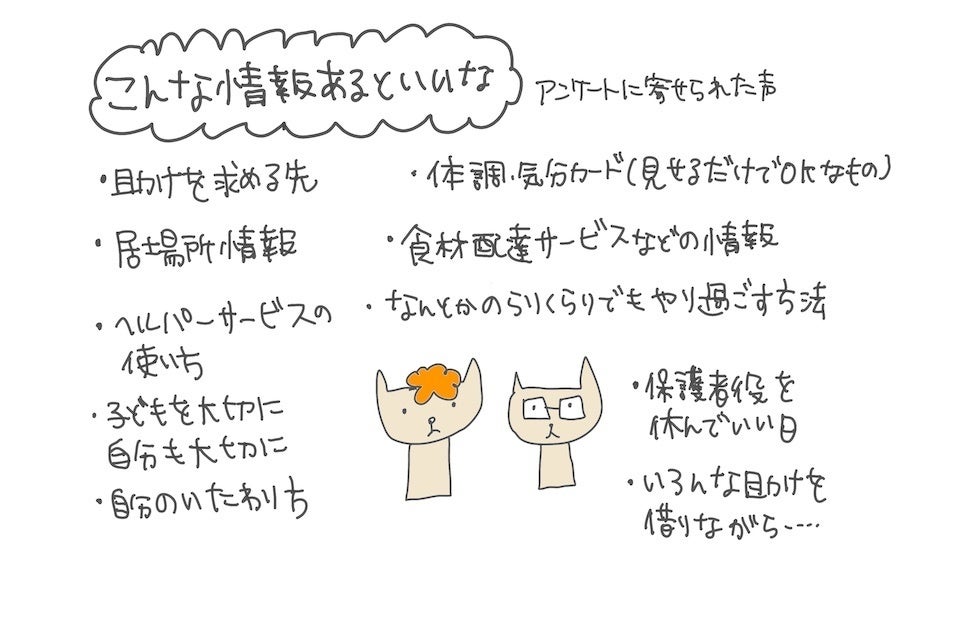 こんな情報あるといいな
アンケートに寄せられた声
・助けを求める先
・居場所情報
・ヘルパーサービスの
使い方
・子どもを大切に
自分も大切に
・自分のいたわり方
・体調・気分カード(見せるだけでOKなもの)
・食材配達サービスなどの情報
・なんとかのらりくらりでもやり過ごす方法
・保護者役を
休んでいい日
・いろんな助けを
借りながら……